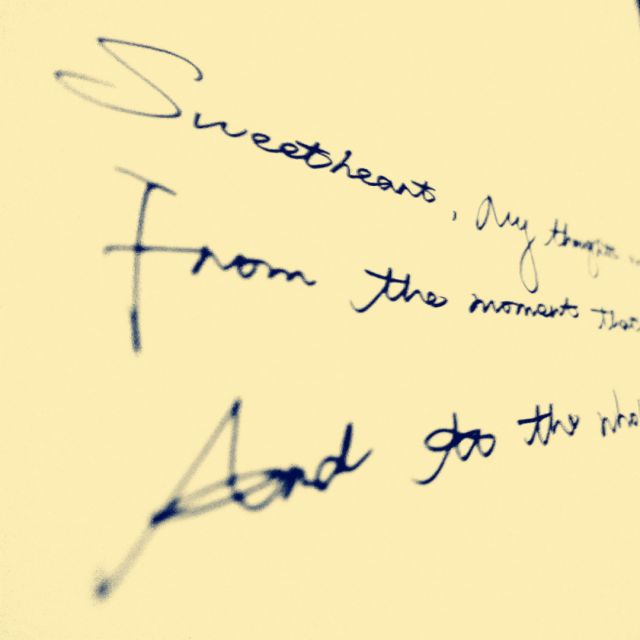 Sweetheart, My thoughts
From the moment that
And to the